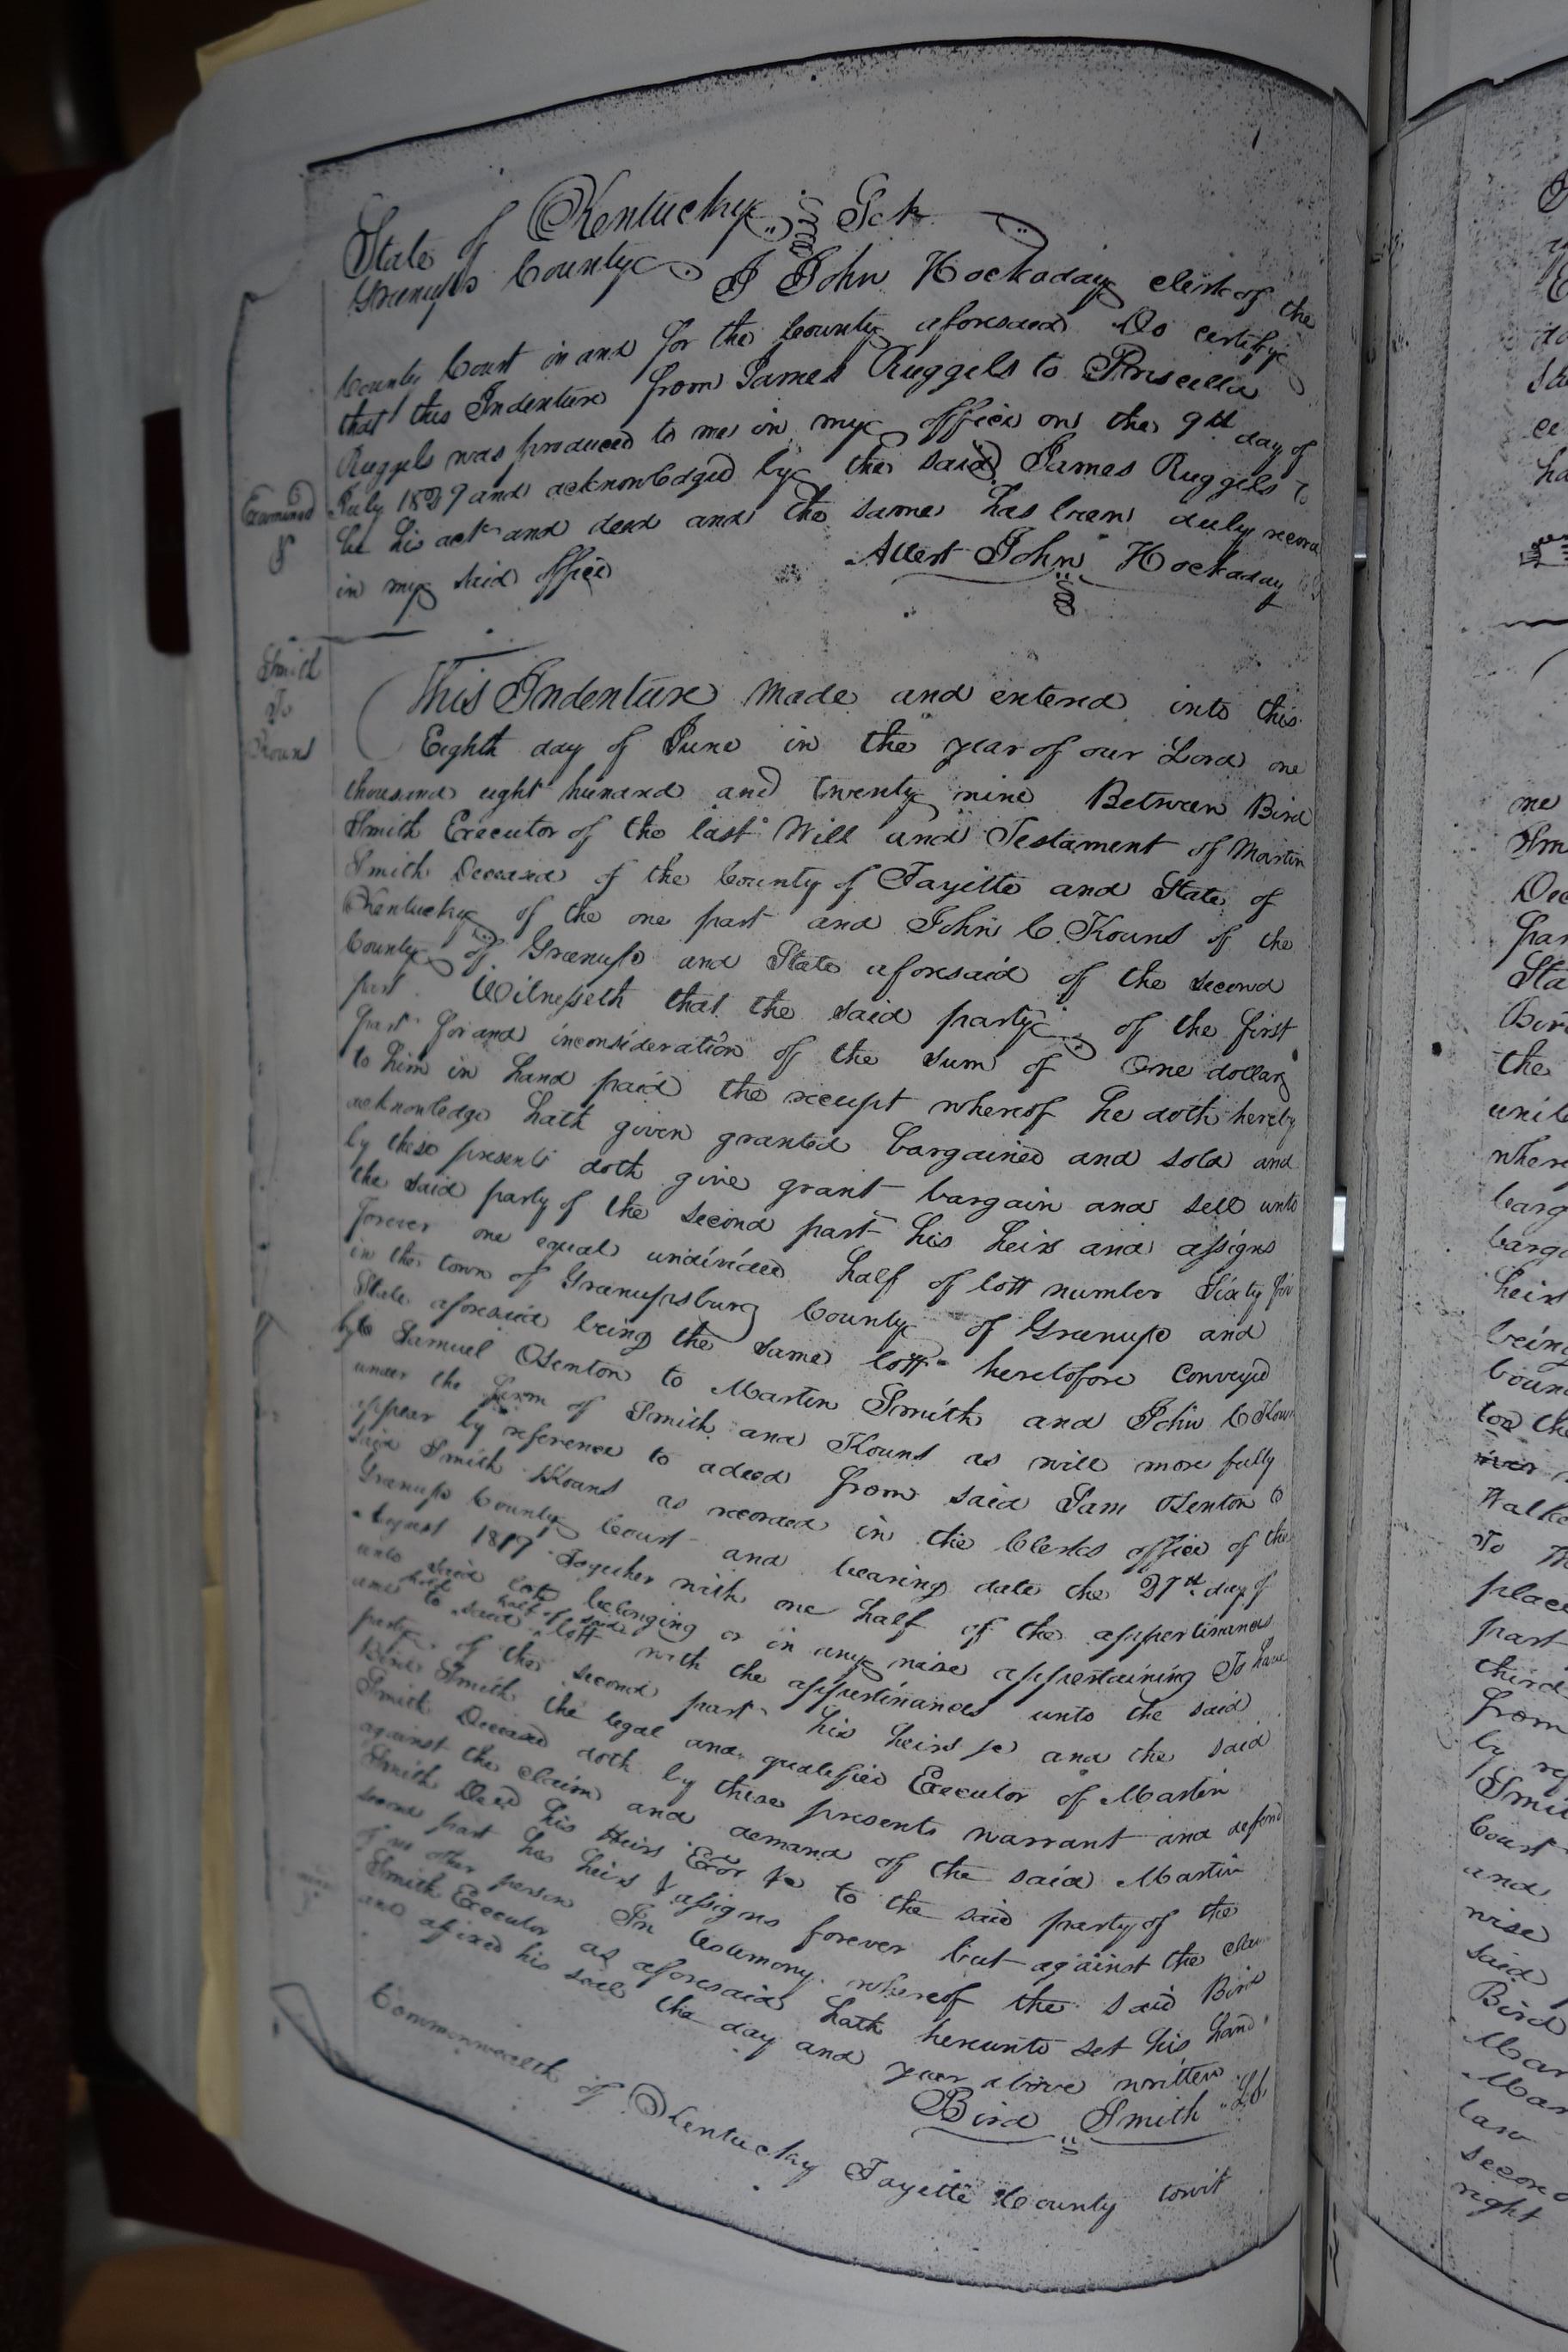 State of Kentucky Sct
Greenup County I John Hockaday clerk of the
County Court in and for the County aforesaid Do certify
that this Indenture from James Ruggels to Priscilla
Ruggels was produced to me in my office on the 9th day of
July 1829 and acknowledged by the said James Ruggels to
be his act and deed and the same has been duly record
in my said office Attest John Hockaday
Examined
Smith
To
Kouns
This Indenture made and entered into this
Eighth day of June in the year of our Lord one
thousand eight hundred and twenty nine Between Bird
Smith Executor of the last Will and Testament of Martin
Smith Deceased of the County of Fayette and State of
Kentucky of the one part and John C. Kouns of the
County of Greenup and State aforesaid of the second
part. Witnesseth that the said party of the first
part for and in consideration of the sum of One dollar
to him in hand paid the receipt whereof he doth hereby
acknowledge hath given granted bargained and sold and
by these presents doth give grant bargain and sell unto
the said party of the second part his heirs and assigns
forever one equal undivided half of lott number Sixty
in the town of Greenupsburg County of Greenup and
State aforesaid being the same lott heretofore conveyed
by Samuel Osenton to Martin Smith and John C Kouns
under the firm of Smith and Kouns as will more fully
appear by reference to a deed from said Sam Osenton to
said Smith & Kouns as recorded in the Clerks office of the
Greenup County Court and bearing date the 27th day of
August 1817 Together with one half of the appertinances
unto said lott belonging or in any wise appertaining To have
and to hold said half of said lott with the appertinances unto the said
party of the second part his heirs &c and the said
Bird Smith the legal and qualified Executor of Martin
Smith Deceased doth by these presents warrant and defend
against the claim and demand of the said Martin
Smith Decd his Heirs Exor &c to the said party of the
second part his heirs & assigns forever but against the
of no other person In testimony whereof the said Bird
Smith Executor as aforesaid hath hereunto set his hand
and affixed his seal the day and year above written
Bird Smith LS
Commonwealth of Kentucky Fayette County towit
me
Dec
par
Sta
Bir
the
unto
where
barg
barga
heirs
being
boun
Walke
To
place
part
third
from
by re
Smi
Court
and
wise
said
Bird
Mar
Mar
law
second
right